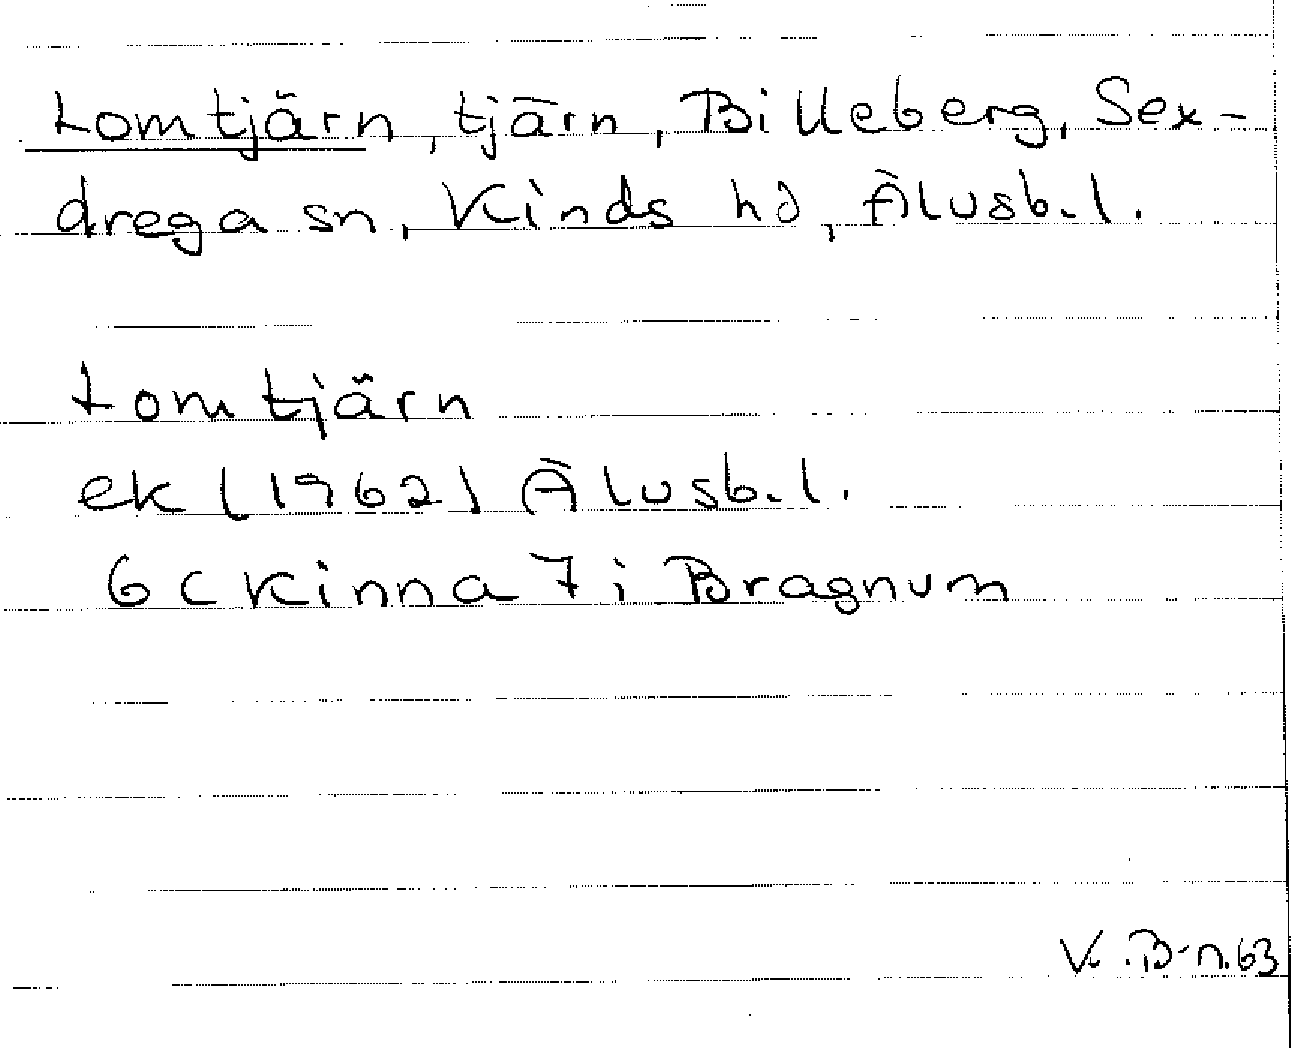 Lomtjärn, tjärn, Billeberg, Sex-
drega sn, Kinds hd, Älvsb. l.
Lomtjärn
ek (1962) Älvsb. l.
6 C Kinna 7 i Bragnum
V. B-n. 63